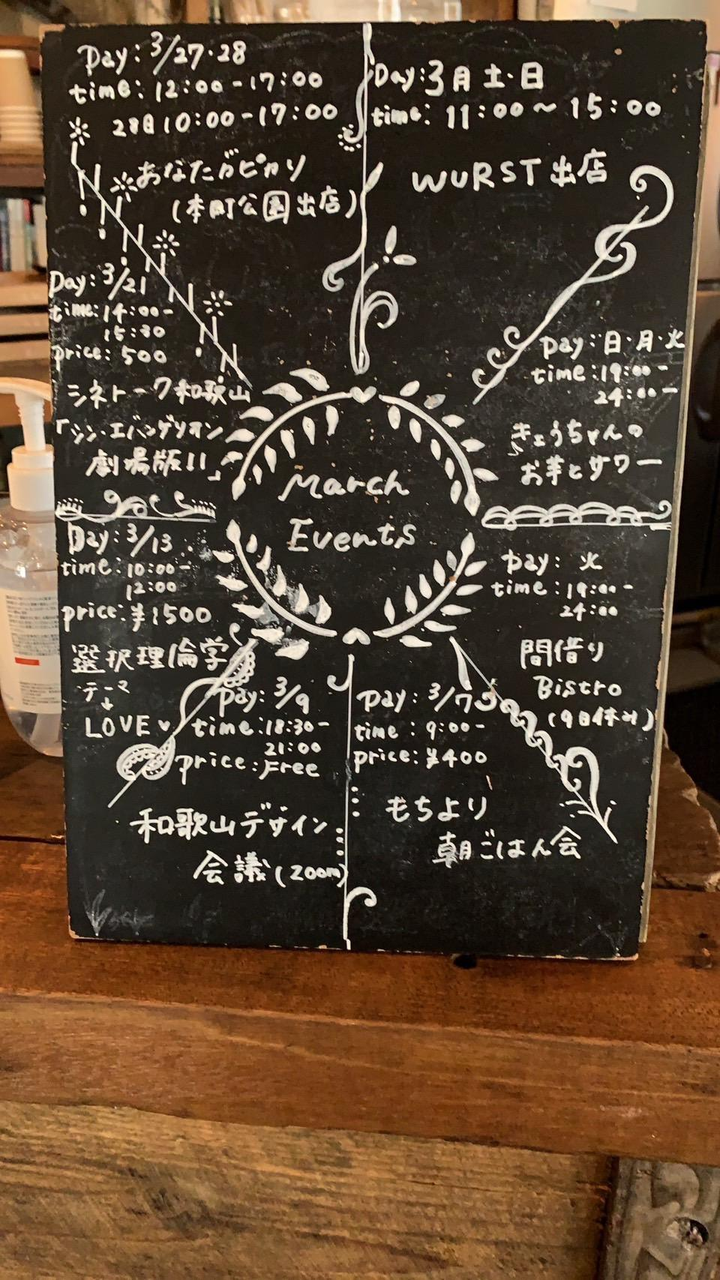 Day: 3/27・28
time: 12:00-17:00
28日10:00-17:00
あなたがピカリ
(本町公園出店)
Day: 3月 土・日
time: 11:00〜15:00
WURST 出店
Day: 日・月・火
time: 19:00-
24:00-
きょうちゃんの
お芋とサワー
Day: 火
time: 19:00-
24:00
間借り
Bistro
(9日休み)
Day: 3/7
time: 9:00-
price: ¥400
もちより
朝ごはん会
Day: 3/9
time: 18:30-
21:00
price: Free
和歌山デザイン
会議(zoom)
Day: 3/13
time: 10:00-
12:00
price: ¥1500
選択理論学
テーマ
↓
LOVE♥
Day: 3/21
time: 14:00-
15:30
price: 500
シネトーク和歌山
「シン・エバンゲリオン
劇場版||」
March
Events